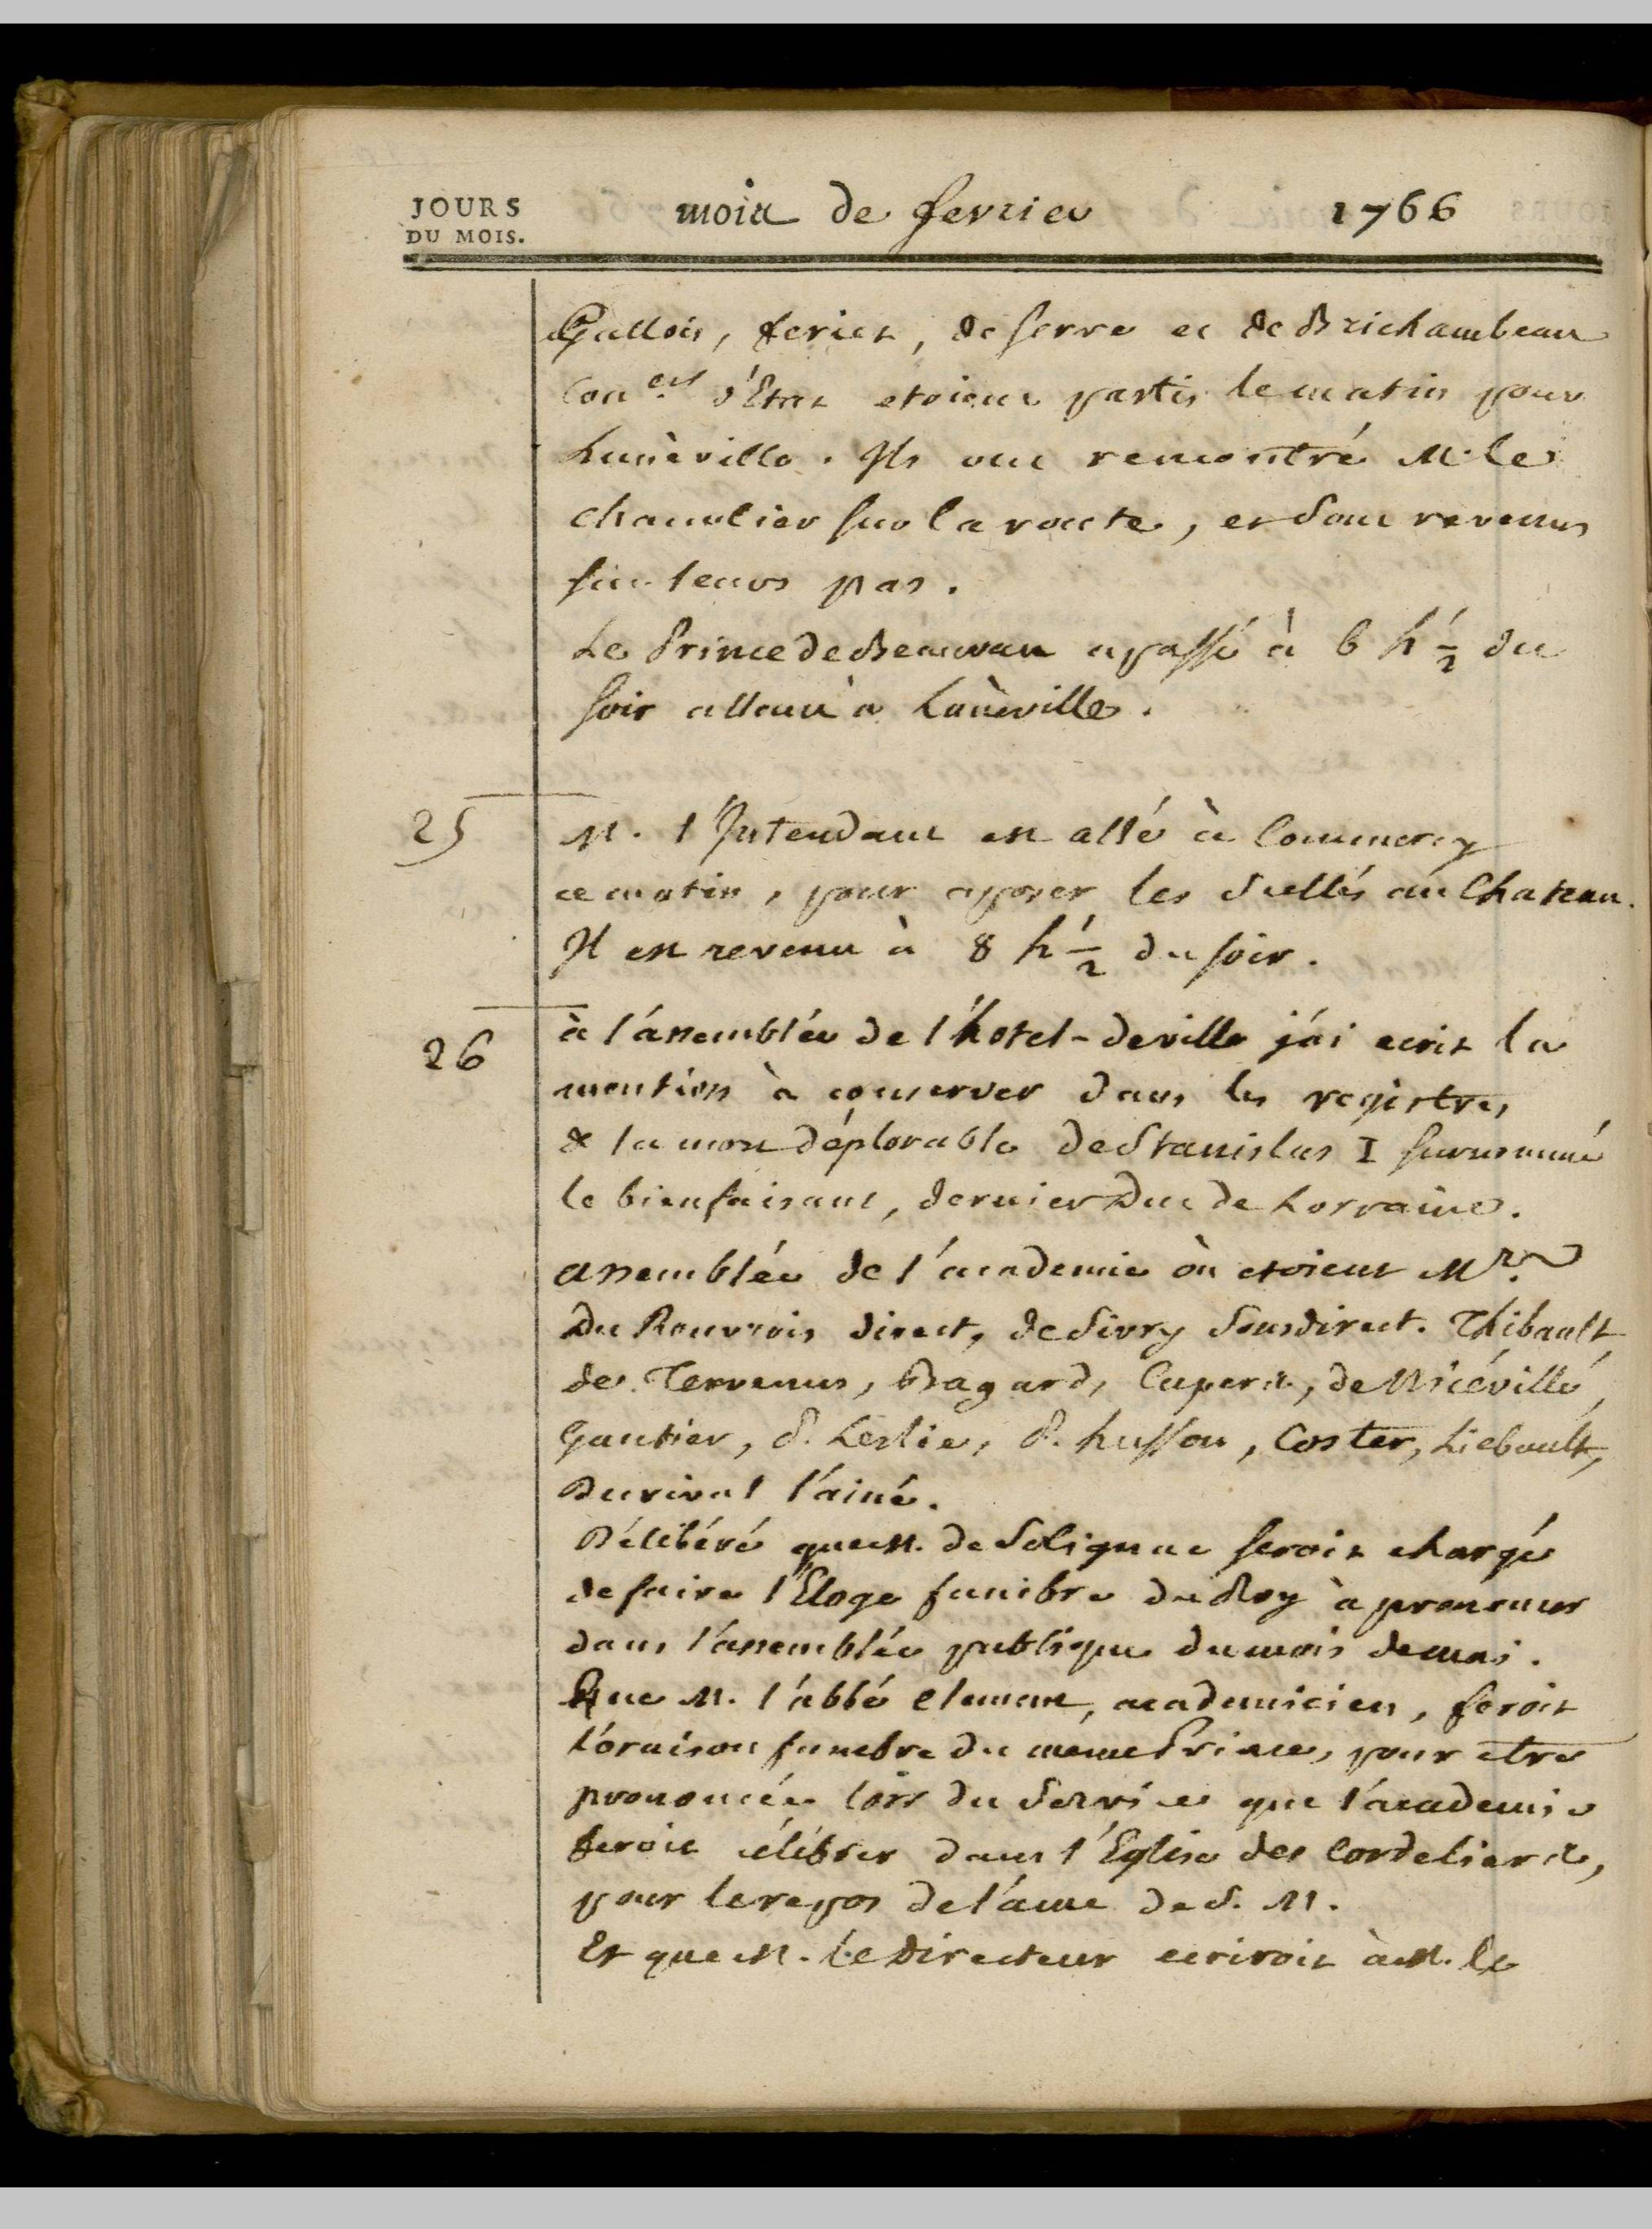 JOURS
DU MOIS.
mois de fevrier 1766
Gallois, feriet, de serre et de Brichambeau
Con.ers d'Etat etoient partis le matin pour
Lunèville. Ils ont rencontré M. le
chancelier sur la route, et sont revenus
sur leurs pas.
Le Prince de Beauvau a passé à 6 h 1/2 du
soir allant à Lunèville.
25
M. l'Intendant est allé à Commercy
ce matin, pour aposer les scellés au Chateau.
Il est revenu à 8 h 1/2 du soir.
26
à l'assemblée de l'hotel-de ville j'ai ecrit la
mention à conserver dans les registres
de la mort déplorable de Stanislas I surnommé
le bienfaisant, dernier Duc de Lorraine.
assemblée de l'academie où etoient Mrs.
Du Rouvrois direct, de Sivry Sousdirect. Thibault,
de Tervenus, Bagard, Cupers, de Nicéville,
Gautier, P. Leslie, P. husson, Coster, Liebault,
Durival l'ainé.
Délibéré que M. de Solignac seroit chargé
de faire l'Eloge funèbre du Roy à prononcer
dans l'assemblée publique du mois de mai.
Que M. l'abbé clement, academicien, feroit
l'oraison funebre du meme Prince, pour etre
prononcée lors du Service que l'academie
feroit célébrer dans l'Eglise des Cordeliers,
pour le repos de l'ame de S. M.
Et que M. le Directeur ecriroit à M. le